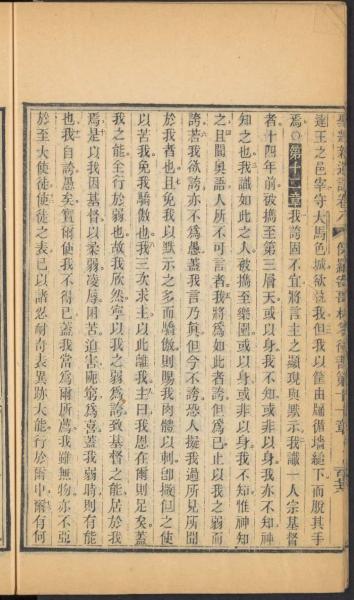 達王之邑宰守大馬色城欲執我但我以筐由牖循墻縋下而脫其手
焉○第十二章我誇固不宜將言主之顯現與默示我識一人宗基督
者十四年前被攜至第三層天或以身我不知或非以身我亦不知神
知之也我識如此之人被攜至樂園或以身或非以身我不知惟神知
之且聞奧語人所不可言者我將爲如此者誇但爲己止以我之弱而
誇若我欲誇亦不爲愚蓋我言乃眞但今不誇恐人擬我過所見所聞
於我者也且免我以默示之多而驕傲則賜我肉體以刺卽撒但之使
以苦我免我驕傲也我三次求主以此離我主曰我恩在爾則足矣蓋
我之能全行於弱也故我欣然寧以我之弱爲誇致基督之能居於我
焉是以我因基督以柔弱凌辱困苦迫害阨窮爲喜蓋我弱時則有能
也我自誇愚矣實爾使我不得已蓋我當爲爾所薦我雖無物亦不亞
於至大使徒使徒之表已以諸忍耐奇表異跡大能行於爾中爾有何